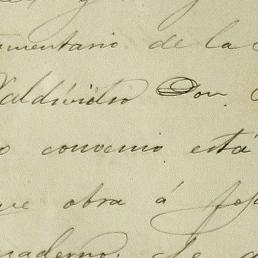 y
mentario de la
Valdivido Don
o convenio está
que obra á
uaderno, de